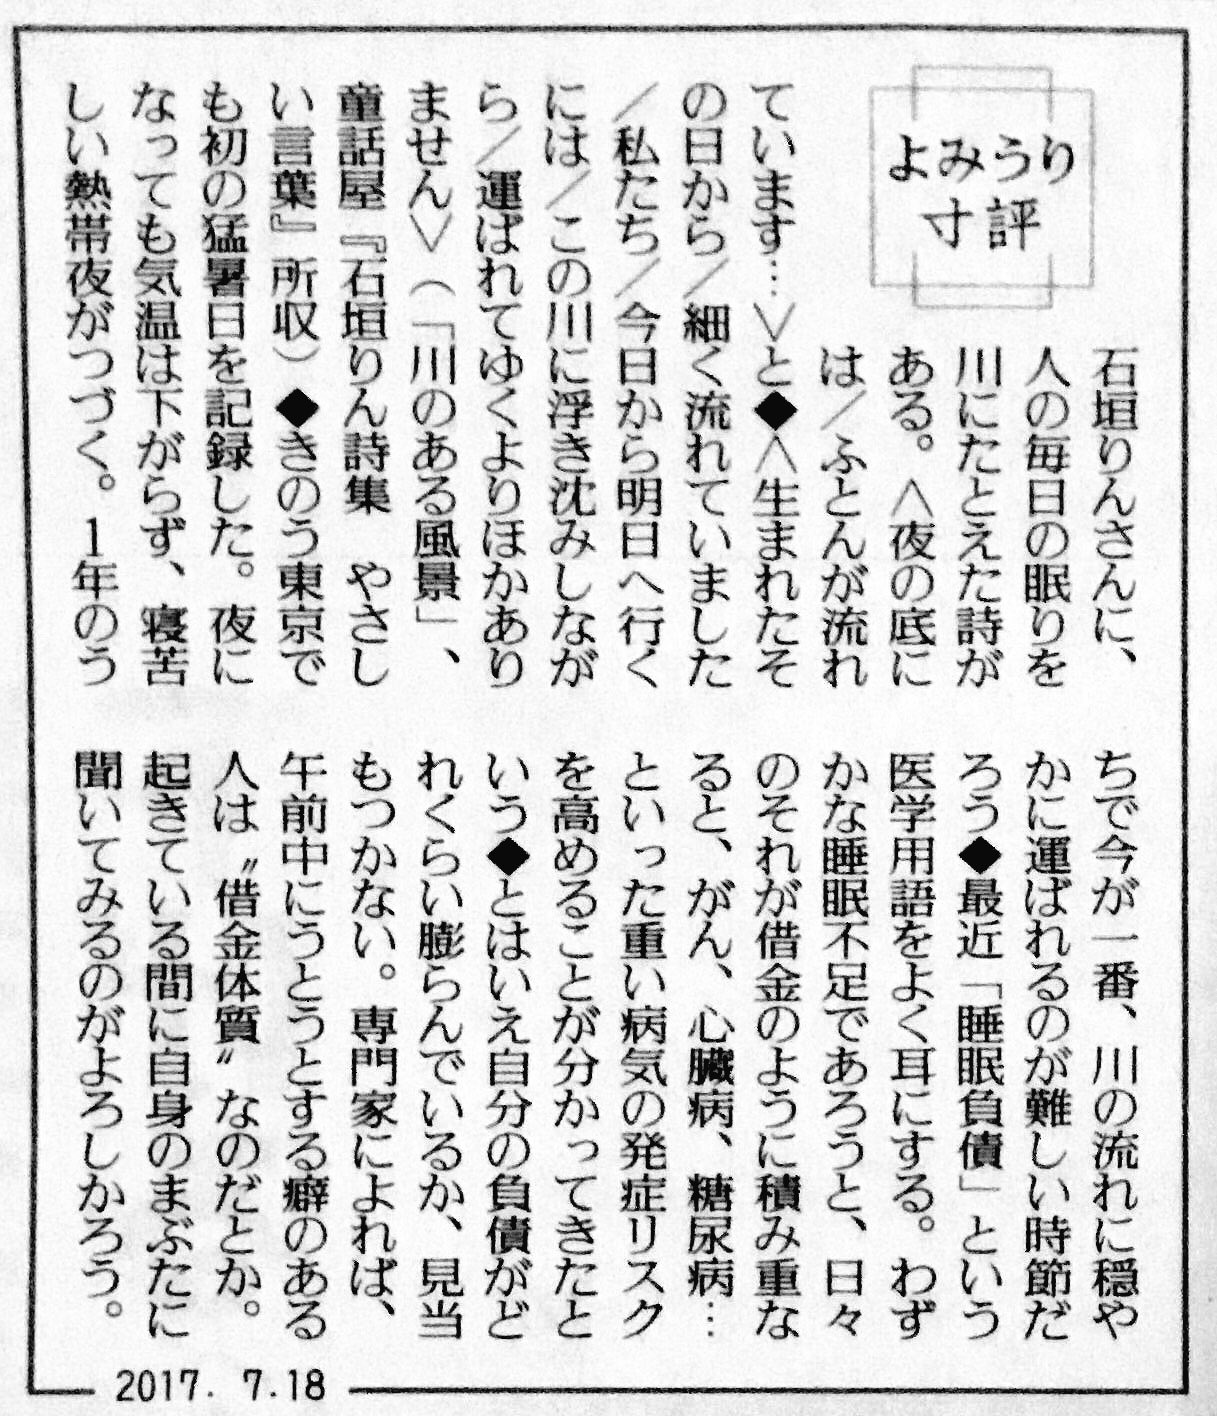 よみうり
寸評
石垣りんさんに、
人の毎日の眠りを
川にたとえた詩が
ある。＜夜の底に
は／ふとんが流れ
ています…＞と◆＜生まれたそ
の日から／細く流れていました
／私たち／今日から明日へ行く
には／この川に浮き沈みしなが
ら／運ばれてゆくよりほかあり
ません＞（「川のある風景」、
童話屋『石垣りん詩集　やさし
い言葉』所収）◆きのう東京で
も初の猛暑日を記録した。夜に
なっても気温は下がらず、寝苦
しい熱帯夜がつづく。１年のう
ちで今が一番、川の流れに穏や
かに運ばれるのが難しい時節だ
ろう◆最近「睡眠負債」という
医学用語をよく耳にする。わず
かな睡眠不足であろうと、日々
のそれが借金のように積み重な
ると、がん、心臓病、糖尿病…
といった重い病気の発症リスク
を高めることが分かってきたと
いう◆とはいえ自分の負債がど
れくらい膨らんでいるか、見当
もつかない。専門家によれば、
午前中にうとうとする癖のある
人は〝借金体質〟なのだとか。
起きている間に自身のまぶたに
聞いてみるのがよろしかろう。
2017. 7.18